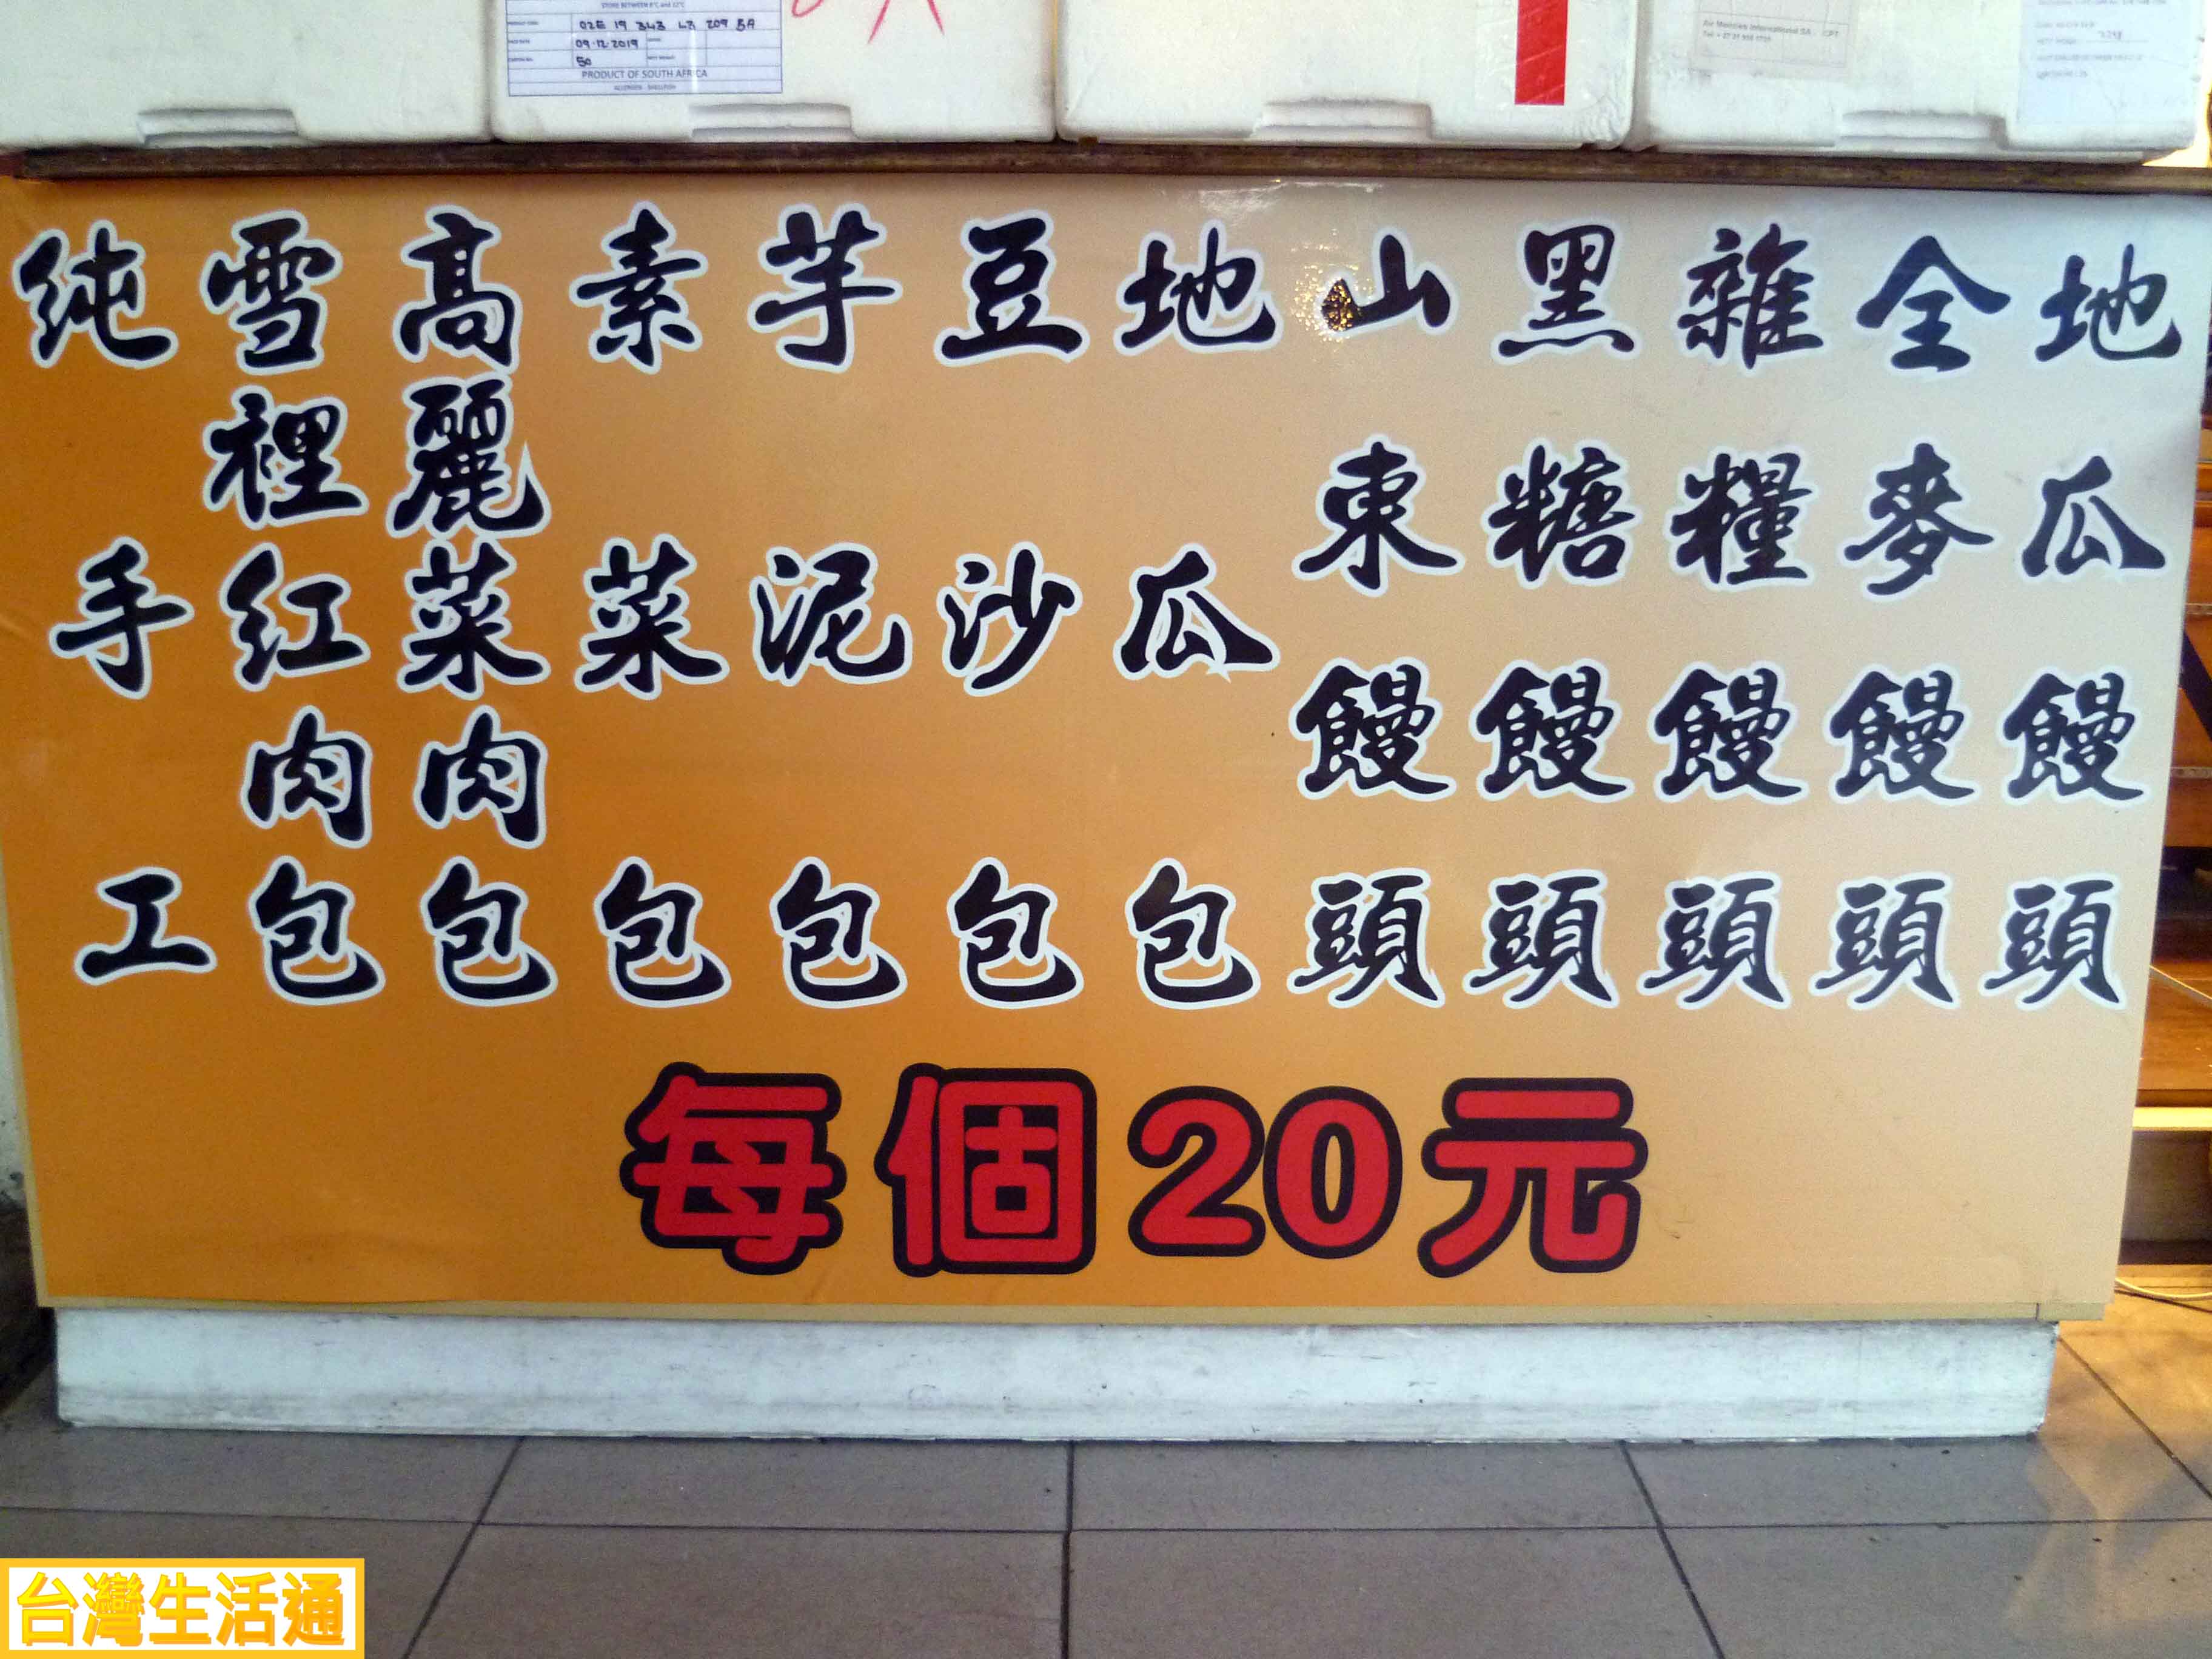 STORE BETWEEN 8°C and 12°C
02E 19 343 L3 209 5A
09·12·2019
50
PRODUCT OF SOUTH AFRICA
ALLERGEN : SHELLFISH
地瓜饅頭
全麥饅頭
雜糧饅頭
黑糖饅頭
山東饅頭
地瓜包
豆沙包
芋泥包
素菜包
高麗菜肉包
雪裡紅肉包
純手工
每個20元
台灣生活通